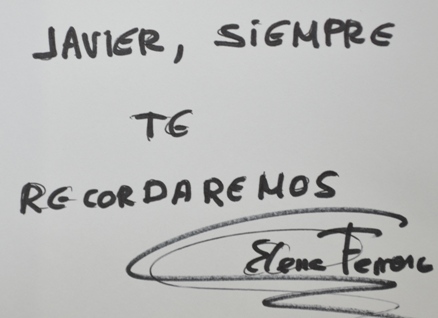 JAVIER, SiEMPRE
TE
RECORDAREMOS
Elena